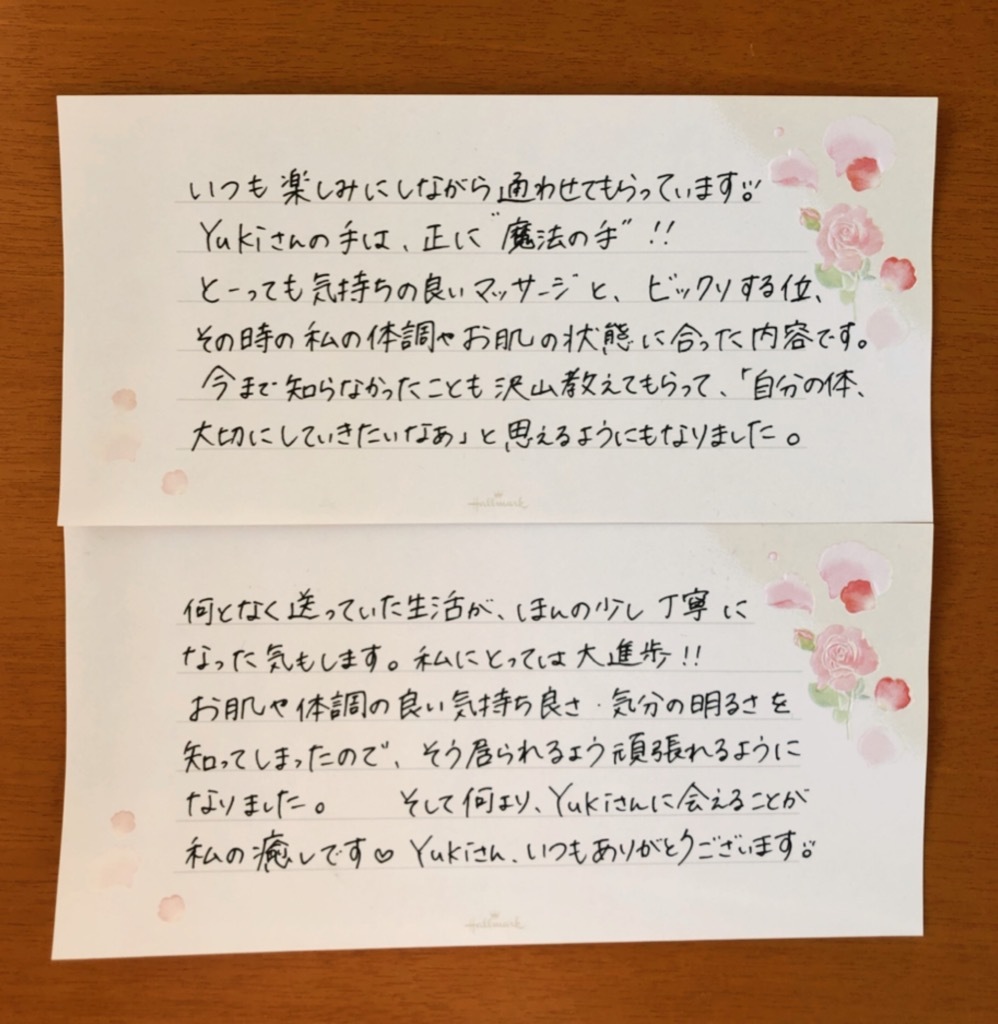 いつも楽しみにしながら通わせてもらっています
Yukiさんの手は、正に"魔法の手"!!
とーっても気持ちの良いマッサージと、ビックリする位、
その時の私の体調やお肌の状態に合った内容です。
今まで知らなかったことも沢山教えてもらって、「自分の体、
大切にしていきたいなあ」と思えるようにもなりました。
Hallmark
何となく送っていた生活が、ほんの少し丁寧に
なった気もします。私にとっては大進歩!!
お肌や体調の良い気持ち良さ・気分の明るさを
知ってしまったので、そう居られるよう頑張れるように
なりました。 そして何より、Yukiさんに会えることが
私の癒しです♡ Yukiさん、いつもありがとうございます
Hallmark